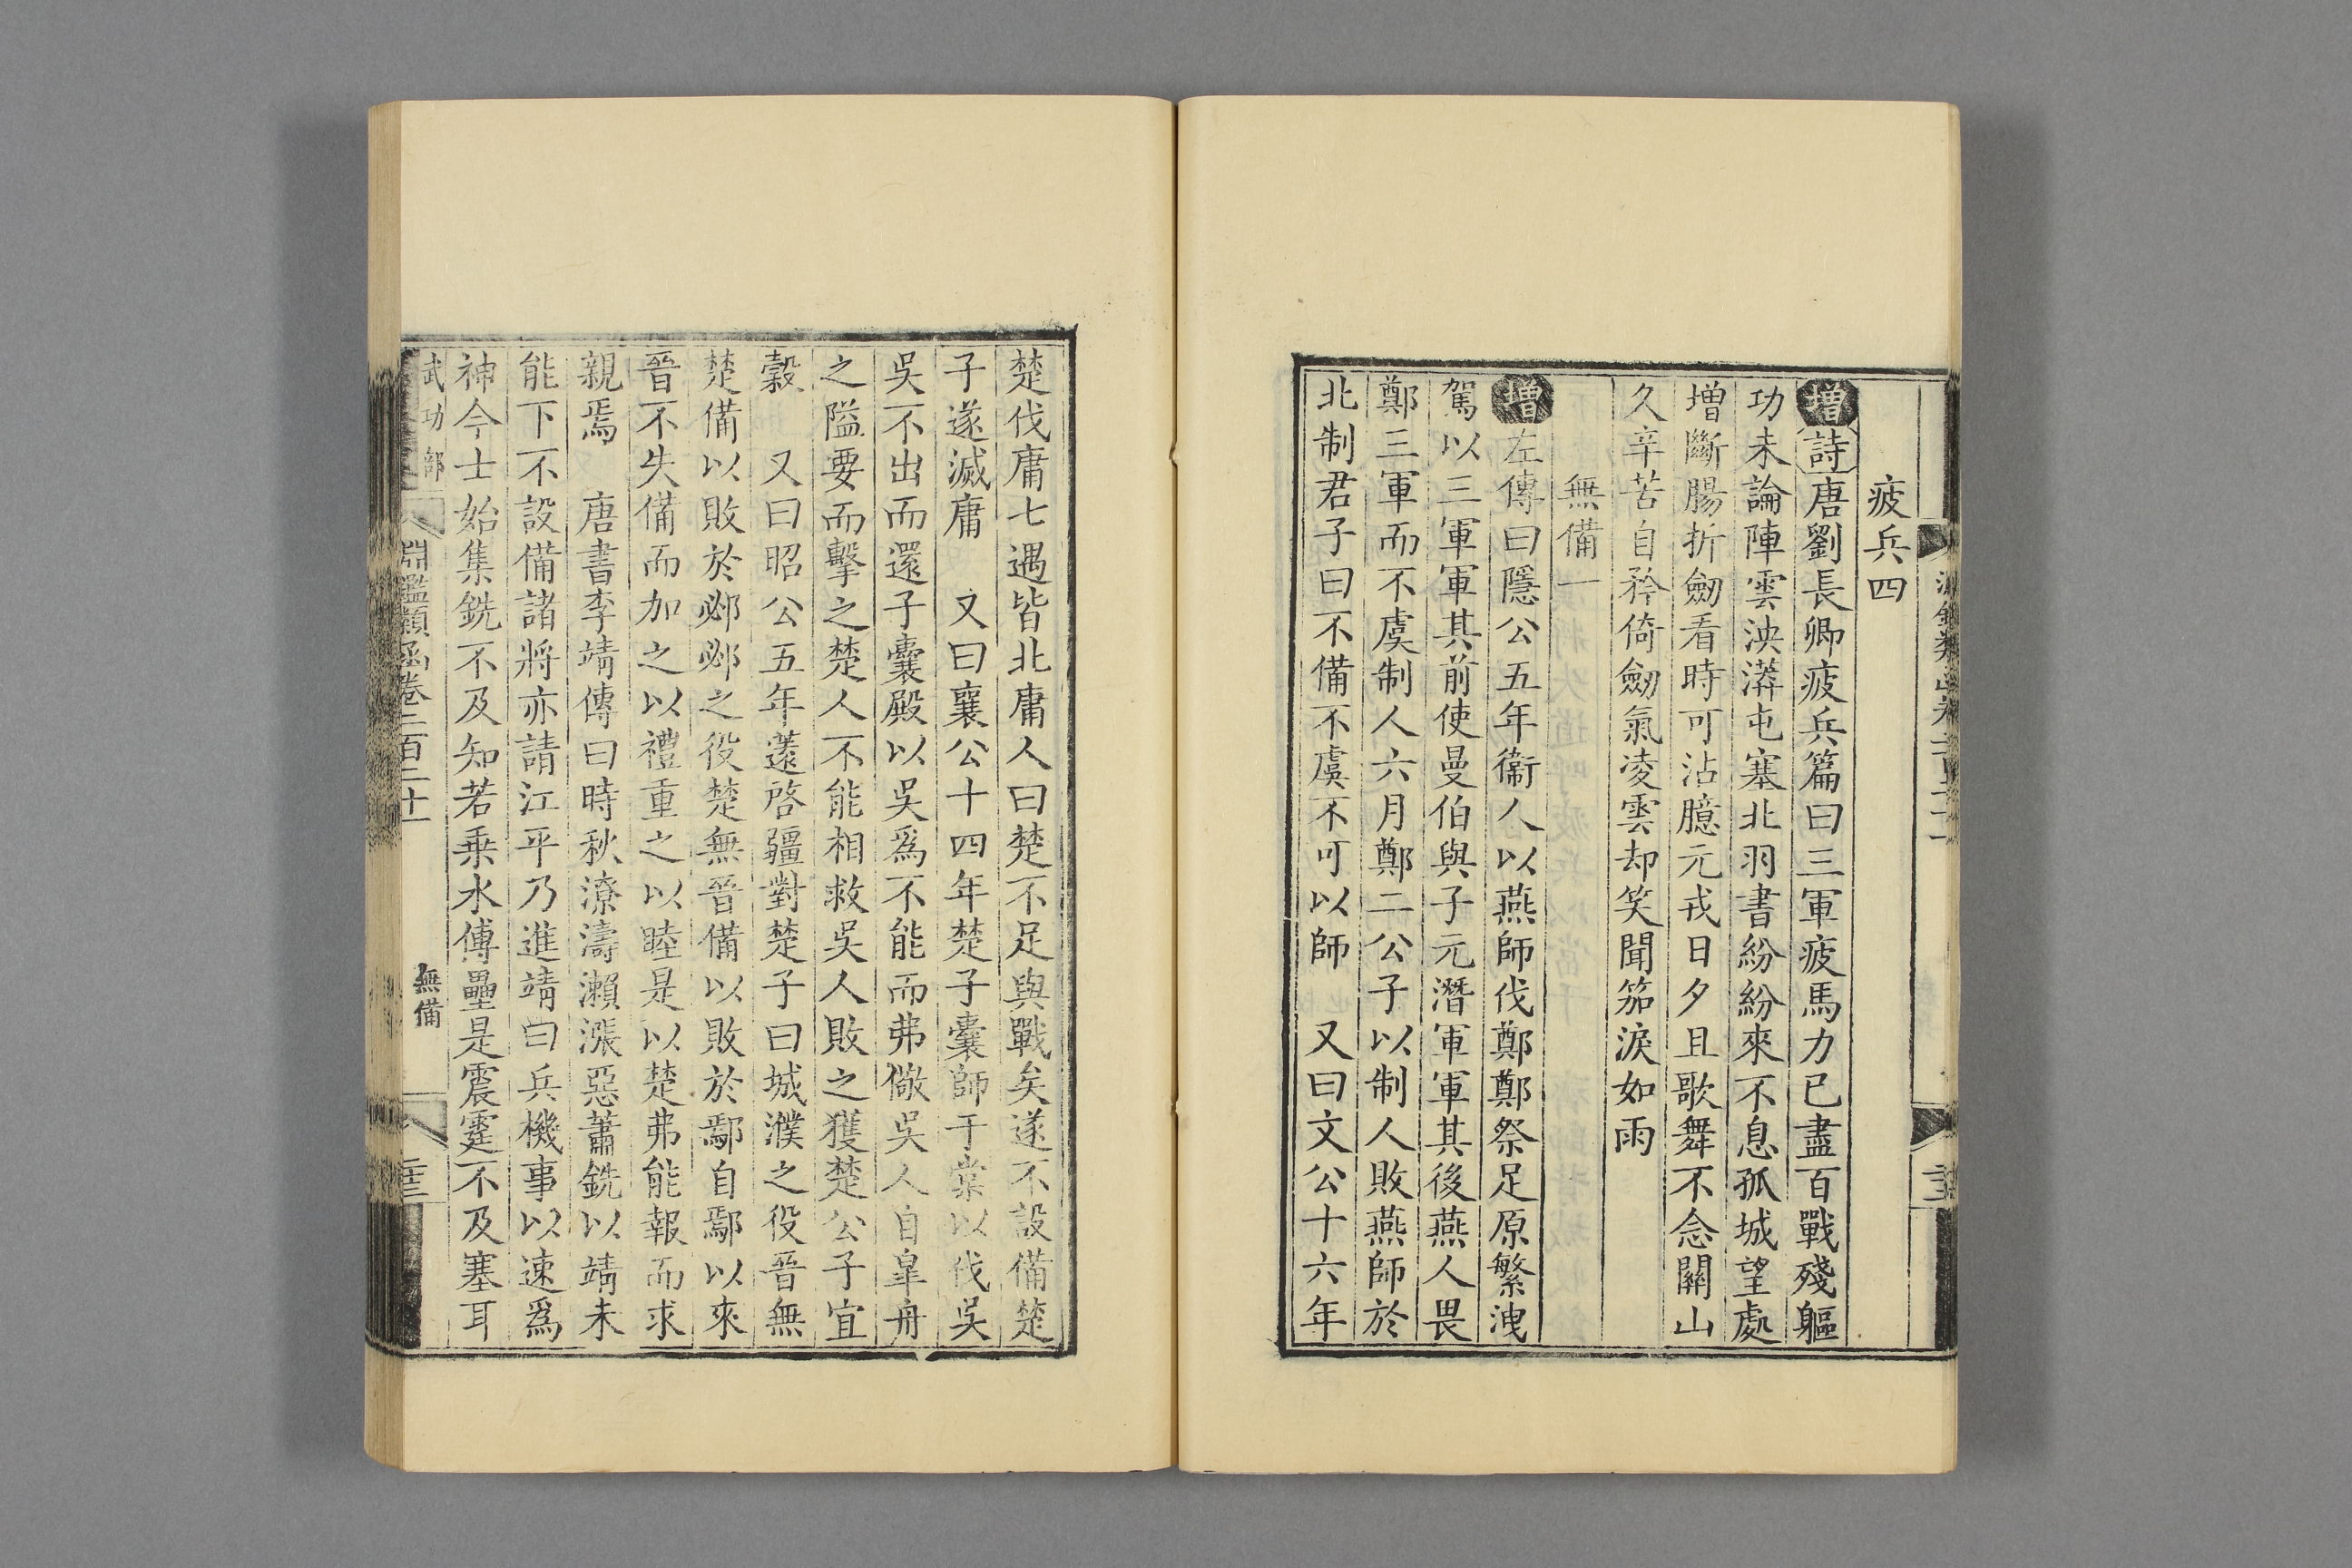 疲兵四
增詩唐劉長卿疲兵篇曰三軍疲馬力已盡百戰殘軀
功未論陣雲泱漭屯塞北羽書紛紛來不息孤城望處
增斷腸折劒看時可沾臆元戎日夕且歌舞不念關山
久辛苦自矜倚劒氣凌雲却笑聞笳淚如雨
無備一
增左傳曰隱公五年衞人以燕師伐鄭鄭祭足原繁洩
駕以三軍軍其前使曼伯與子元潛軍軍其後燕人畏
鄭三軍而不虞制人六月鄭二公子以制人敗燕師於
北制君子曰不備不虞不可以師 又曰文公十六年
楚伐庸七遇皆北庸人曰楚不足與戰矣遂不設備楚
子遂滅庸 又曰襄公十四年楚子囊師于棠以伐吳
吳不出而還子囊殿以吳爲不能而弗儆吳人自皐舟
之隘要而擊之楚人不能相救吳人敗之獲楚公子宜
糓 又曰昭公五年薳啓疆對楚子曰城濮之役晉無
楚備以敗於邲邲之役楚無晉備以敗於鄢自鄢以來
晉不失備而加之以禮重之以睦是以楚弗能報而求
親焉 唐書李靖傳曰時秋潦濤瀨漲惡蕭銑以靖未
能下不設備諸將亦請江平乃進靖曰兵機事以速爲
神今士始集銑不及知若乘水傅壘是震霆不及塞耳
武功部 淵鑑類函卷二百二十 無備